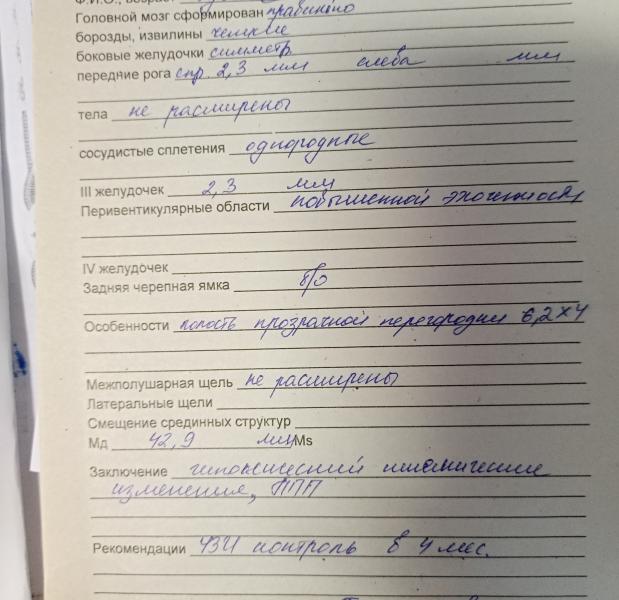 Головной мозг сформирован правильно
борозды, извилины четкие
боковые желудочки симметр
передние рога спр 2,3 мм слева мм
тела не расширены
сосудистые сплетения однородные
III желудочек 2,3 мм
Перивентикулярные области повышенной эхогенности
IV желудочек
Задняя черепная ямка б/о
Особенности полость прозрачной перегородки 6,2×4
Межполушарная щель не расширены
Латеральные щели
Смещение срединных структур
Мд 42,9 мм Ms
Заключение гипоксический ишемические
изменения, ППП
Рекомендации УЗИ контроль в 4 мес.